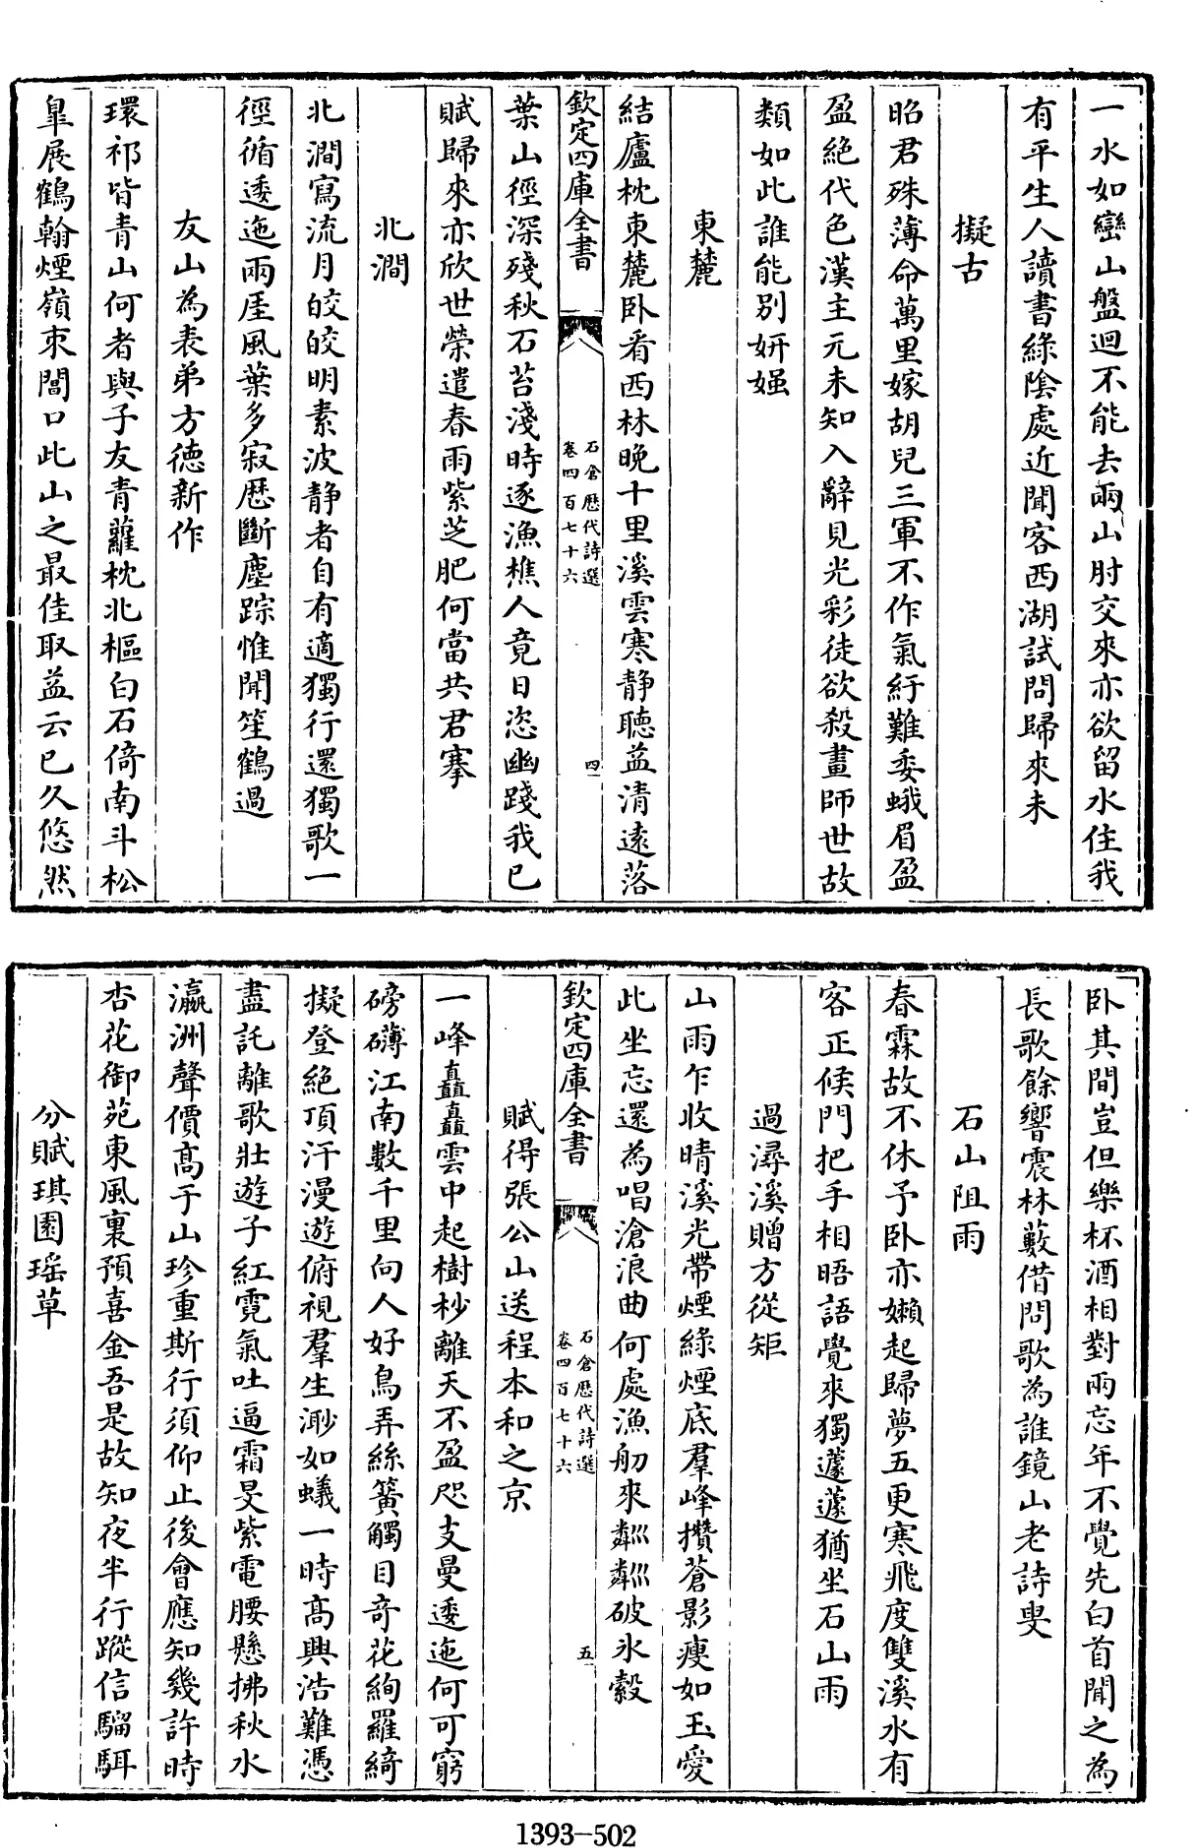 一水如巒山盤迴不能去兩山肘交來亦欲留水住我
有平生人讀書綠陰處近聞客西湖試問歸來未
擬古
昭君殊薄命萬里嫁胡兒三軍不作氣紓難委蛾眉盈
盈絶代色漢主元未知入辭見光彩徒欲殺畫師世故
類如此誰能別妍媸
東麓
結廬枕東麓卧看西林晚十里溪雲寒静聽益清遠落
欽定四庫全書
石倉歷代詩選
卷四百七十六
四
葉山徑深殘秋石苔淺時逐漁樵人竟日恣幽踐我已
賦歸來亦欣世榮遣春雨紫芝肥何當共君搴
北澗
北澗寫流月皎皎明素波静者自有適獨行還獨歌一
徑循逶迤兩厓風葉多寂歷斷塵踪惟聞笙鶴過
友山為表弟方德新作
環祁皆青山何者與子友青蘿枕北樞白石倚南斗松
臯展鶴翰煙嶺朿閶口此山之最佳取益云已久悠然
卧其間豈但樂杯酒相對兩忘年不覺先白首聞之為
長歌餘響震林藪借問歌為誰鏡山老詩叟
石山阻雨
春霖故不休予卧亦嬾起歸夢五更寒飛度雙溪水有
客正候門把手相晤語覺來獨蘧蘧猶坐石山雨
過潯溪贈方從矩
山雨乍收晴溪光帶煙綠煙底羣峰攢蒼影瘦如玉愛
此坐忘還為唱滄浪曲何處漁舠來粼粼破氷縠
欽定四庫全書
石倉歷代詩選
卷四百七十六
五
賦得張公山送程本和之京
一峰矗矗雲中起樹杪離天不盈咫支蔓逶迤何可窮
磅礴江南數千里向人好鳥弄絲簧觸目奇花絢羅綺
擬登絶頂汗漫遊俯視羣生渺如蟻一時高興浩難憑
盡託離歌壯遊子紅霓氣吐逼霜旻紫電腰懸拂秋水
瀛洲聲價高于山珍重斯行須仰止後會應知幾許時
杏花御苑東風裏預喜金吾是故知夜半行蹤信騮駬
分賦琪園瑤草
1393—502